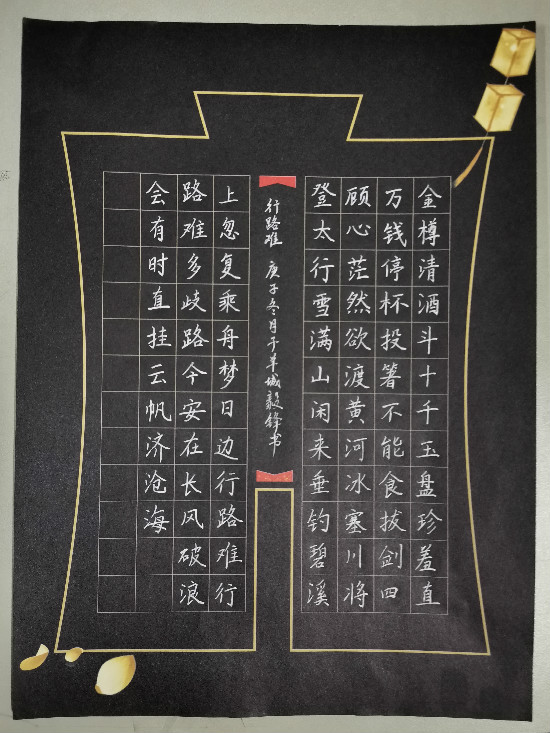 金樽清酒斗十千玉盘珍羞直
万钱停杯投箸不能食拔剑四
顾心茫然欲渡黄河冰塞川将
登太行雪满山闲来垂钓碧溪
上忽复乘舟梦日边行路难行
路难多歧路今安在长风破浪
会有时直挂云帆济沧海
行路难 庚子冬月于羊城毅锋书